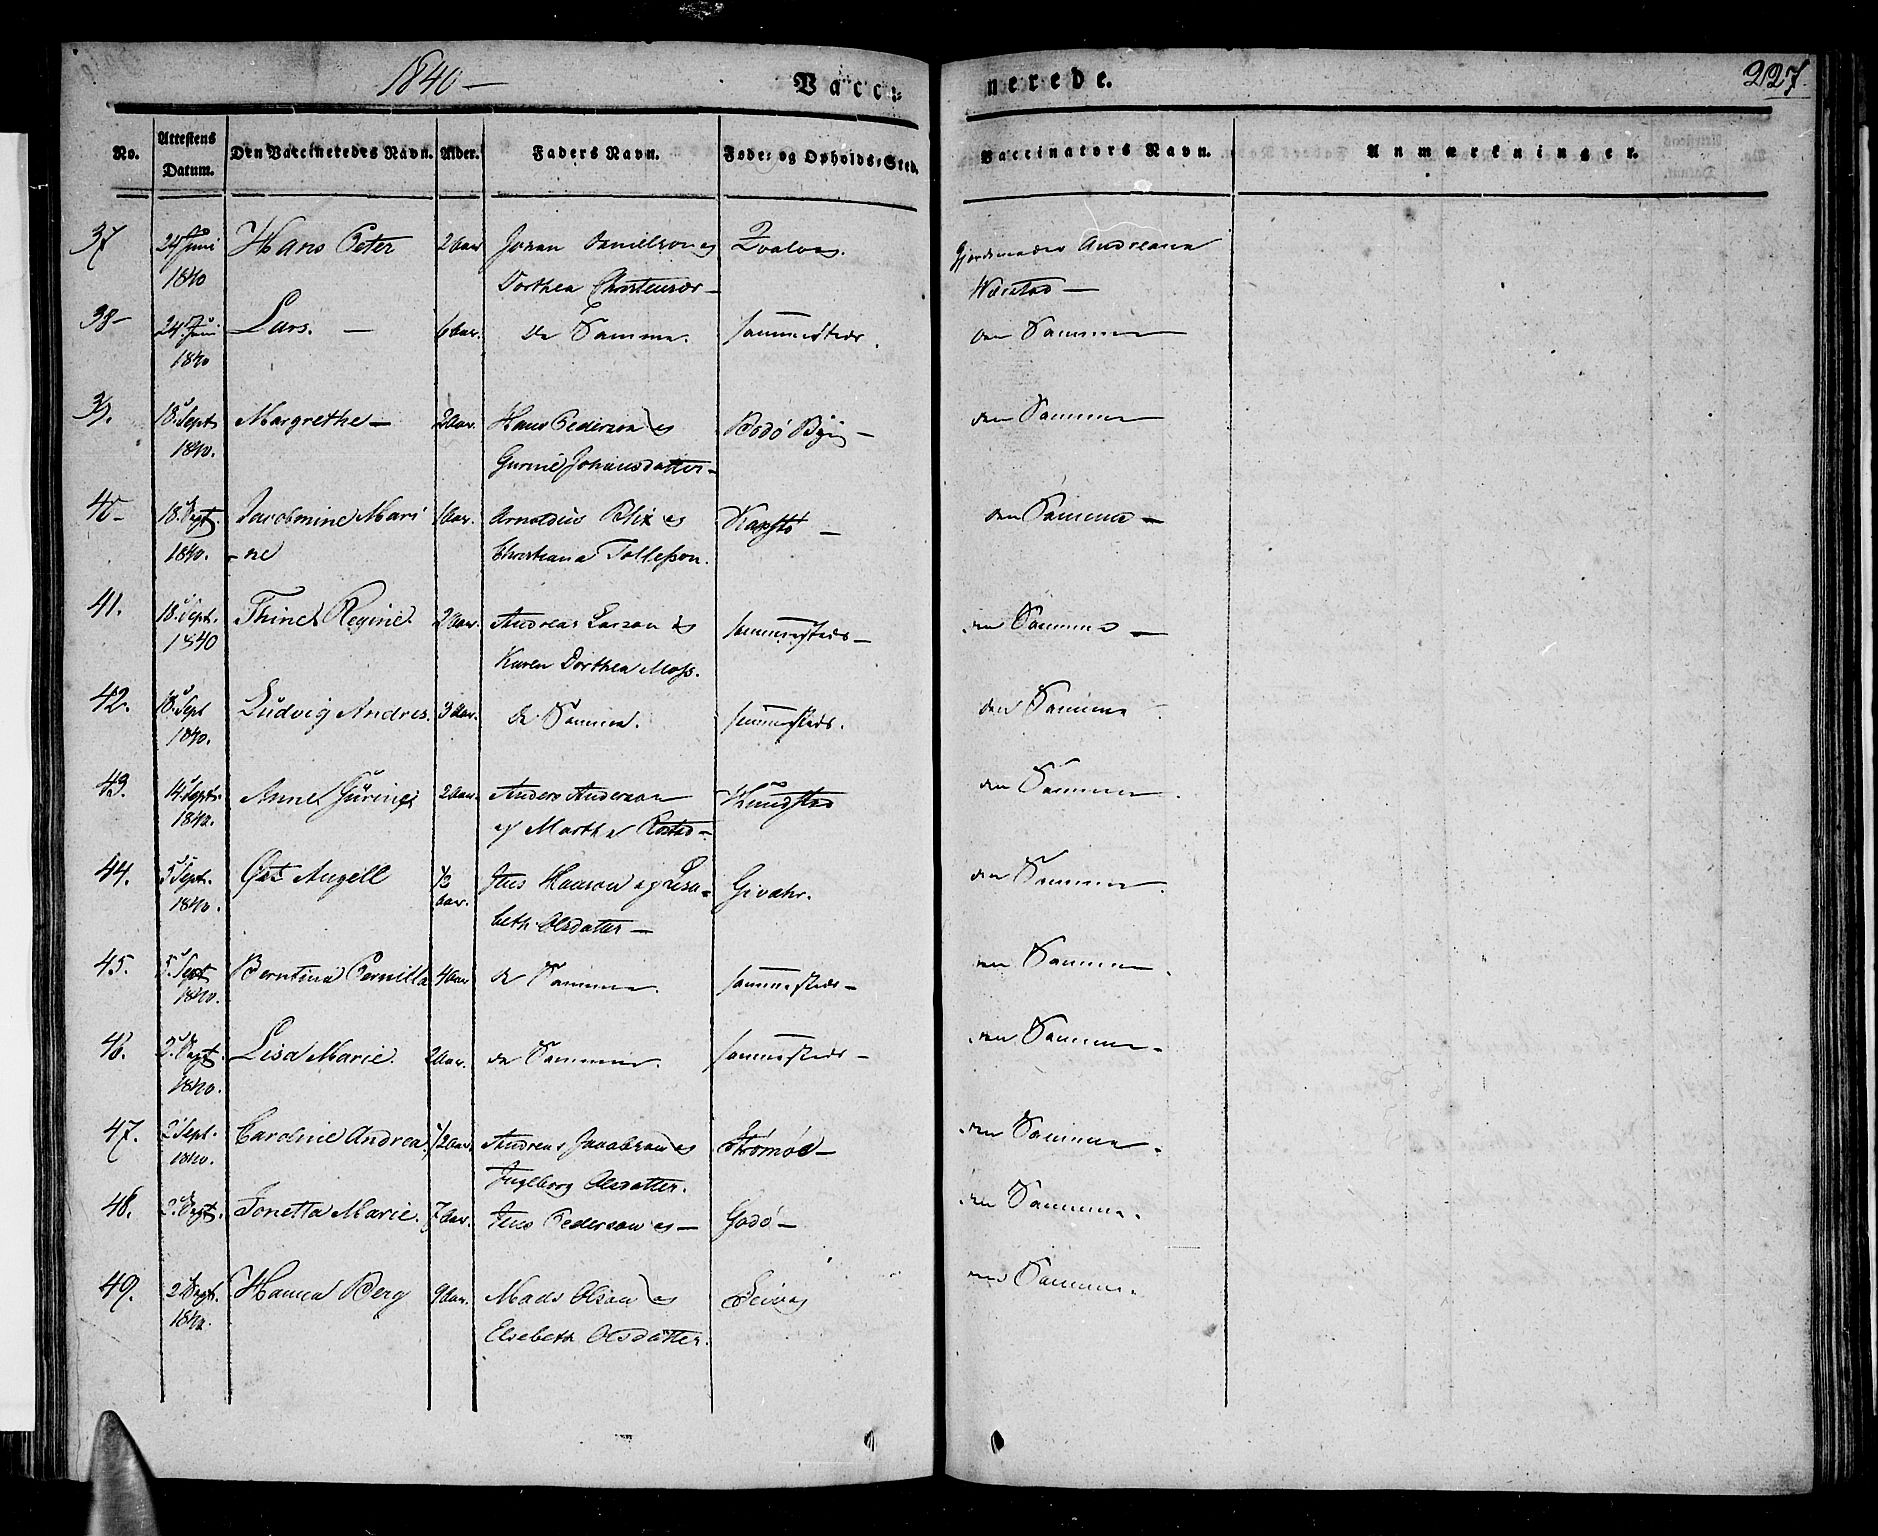 1840 —
Vacci
nerede.
227
No.
Attestens Datum.
Den Vaccineredes Navn.
Alder.
Faders Navn.
Føde- og Opholds-Sted.
Vaccinators Navn.
Anmærkninger.
37 24 Juni Hans Peter 2 Aar Johan Danielsen og Gjordemoder Andreana
1840 Dorthea
38 — 24 Juni Lars. — 6 Aar. de Samme. sammesteds. den Samme
1840
39. 18. Sept Margrethe — 2 Aar. Hans Pederson og Bodø By — den Samme
1840. Gurine Johansdatter —
40 — 18. Sept. Jacobmine Mari 1 Aar. Arnoldus Blix og — den Samme —
1840. - ne Christiana Tollefson.
41. 18. Sept. Thine Regine 2 Aar. Andreas Larson og sammesteds — den Samme —
1840 Karen Dorthea Moss.
42. 18. Sept Ludvig Andreas. 3 Aar. de Samme. sammesteds. den Samme
1840.
43. 14. Sept. Anne 2 Aar. Anders Anderson den Samme.
1840. og Martha
44. 5 Sept. Angell 1/2 Jens Hanson og Elisa- den Samme.
1840. Aar. beth Olsdatter —
45. 5. Sept Berntina Pernilla 4 Aar de Samme. sammesteds — den Samme.
1840.
46. 5. Sept. Lisa Marie. 2 Aar. de Samme. sammesteds — den Samme —
1840.
47. 2 Sept. Caroline Andrea. 1/2 Aar. Andreas Jacobson og den Samme.
1840. Ingeborg Olsdatter.
48. 2 Sept. Jonetta Marie. 7 Aar. Jens Pederson og — Godø — den Samme.
49. 2 Sept. Hanna Berg 9 Aar. Mads Olson og Seivaag den Samme.
1840. Elsebeth Olsdatter.